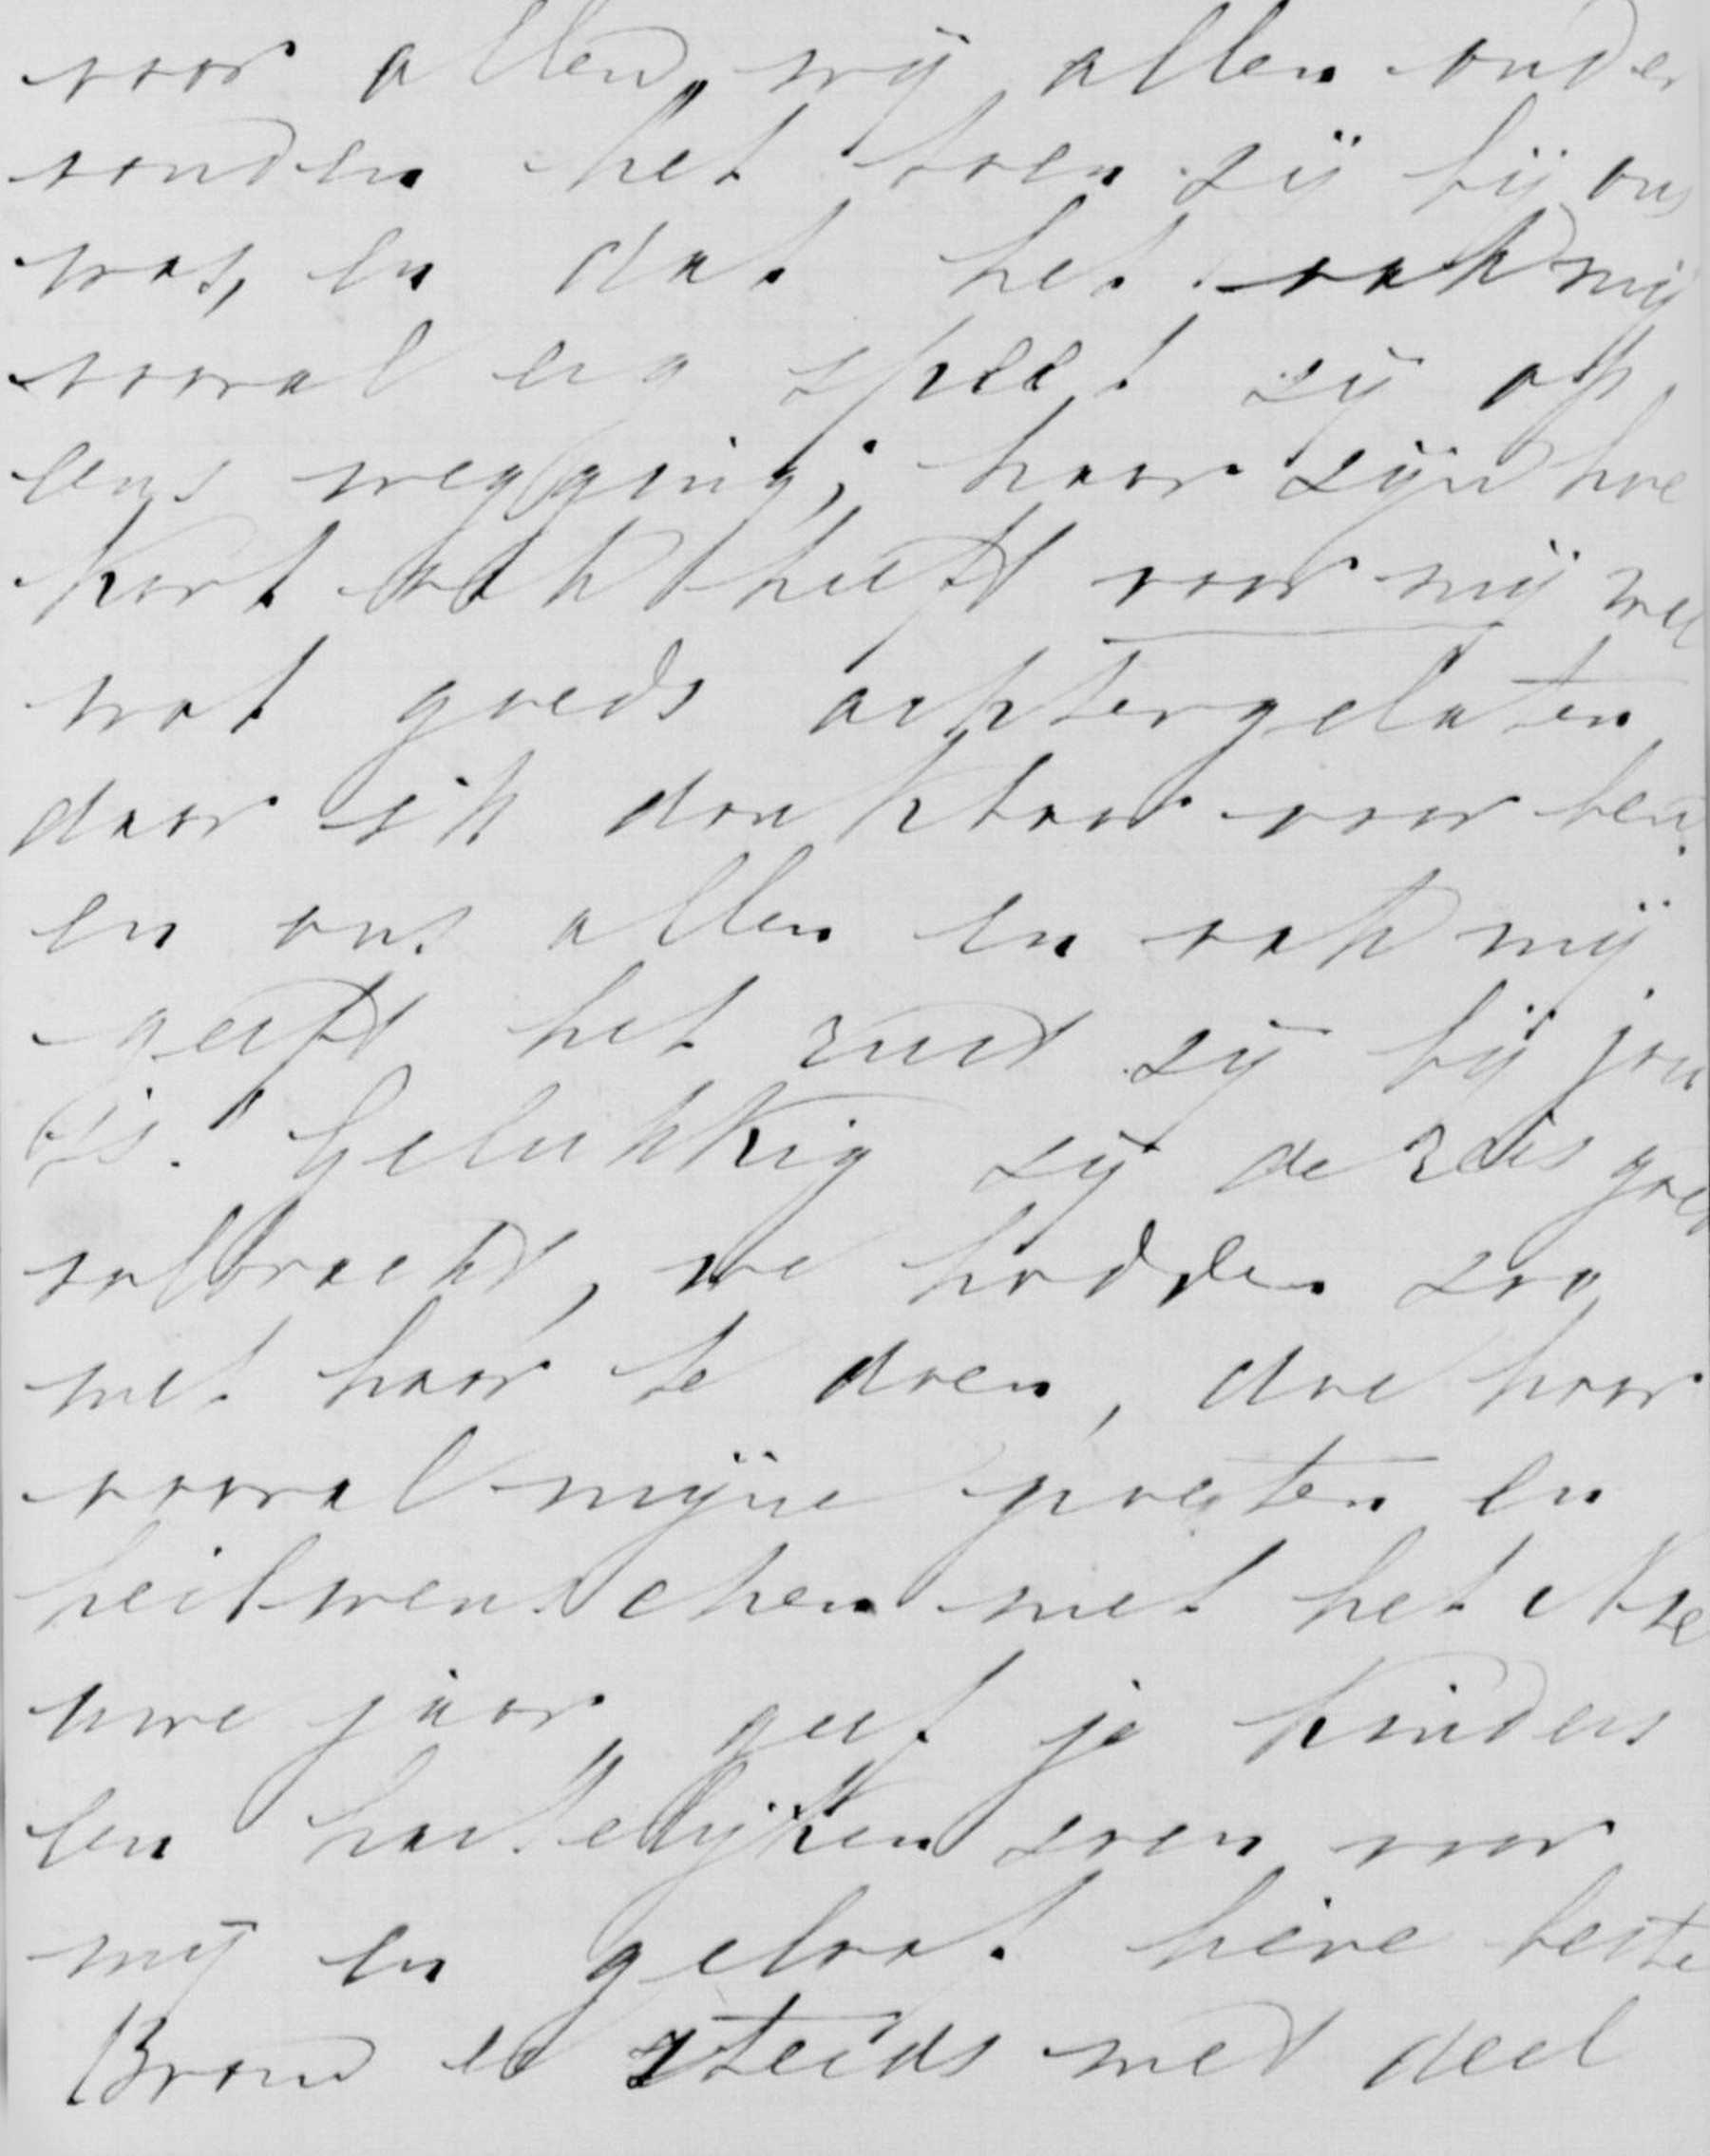 voor allen, wij allen onder
vonden het toen zij bij ons
was, en dat het ook mij
vooral erg speet zij op
eens wegging; haar zijn hoe
kort ook heeft voor mij wel
wat goeds achtergelaten
daar ik dankbaar voor ben,
en ons allen en ook mij
geeft het rust zij bij jou
is. Gelukkig zij de reis goed
volbracht, we hadden zoo
met haar te doen, doe haar
vooral mijne groeten en
heilwenschen met het Nie
uwe jaar, geef je kinders
een hartelijken zoen voor
mij en geloof lieve beste
Broer er steeds met deel